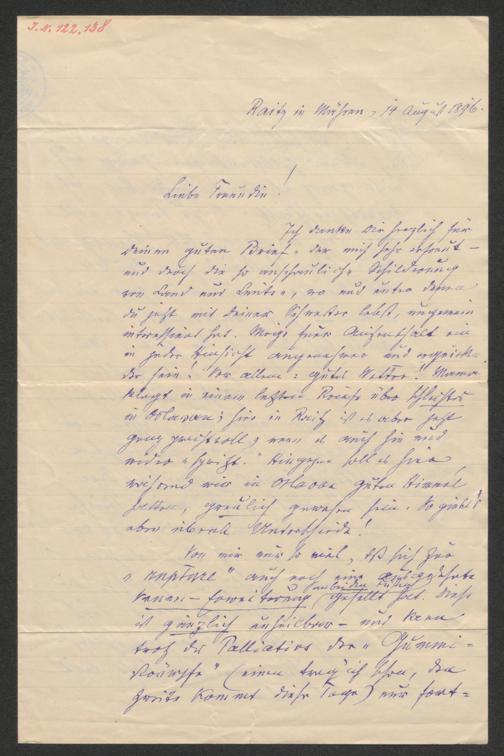 I.N. 122.138
Raitz in Mähren, 19 August 1896.
Liebe Freundin!
Ich danke Dir herzlich für
Deinen guten Brief, der mich sehr erfreut –
und durch die so anschauliche Schilderung
von Land und Leuten, wo und unter denen
Du jetzt mit Deiner Schwester lebst, ungemein
interessirt hat. Möge Euer Aufenthalt ein
in jeder Hinsicht angenehmer und
der sein! Vor allem: gutes Wetter! Mama
klagt in einem letzten Briefe über schlechtes
in Oslavan; hier in Raitz ist es aber jetzt
ganz prachtvoll, wenn es auch hin und
wieder Hingegen soll es hier,
während wir in Oslavan guten Himmel
hatten, greulich gewesen sein. So giebt's
eben überall Unterschiede!
Von mir nur so viel, daß sich zur
"Ruptur" auch noch eine ausgedehnte
Venen-Erweiterung (an beiden Füßen) gesellt hat. Diese
ist gänzlich unheilbar – und kann
trotz des Palliativs der "Gummi-
Strümpfe" (einen trag' ich schon, der
zweite kommt dieser Tage) nur fort-